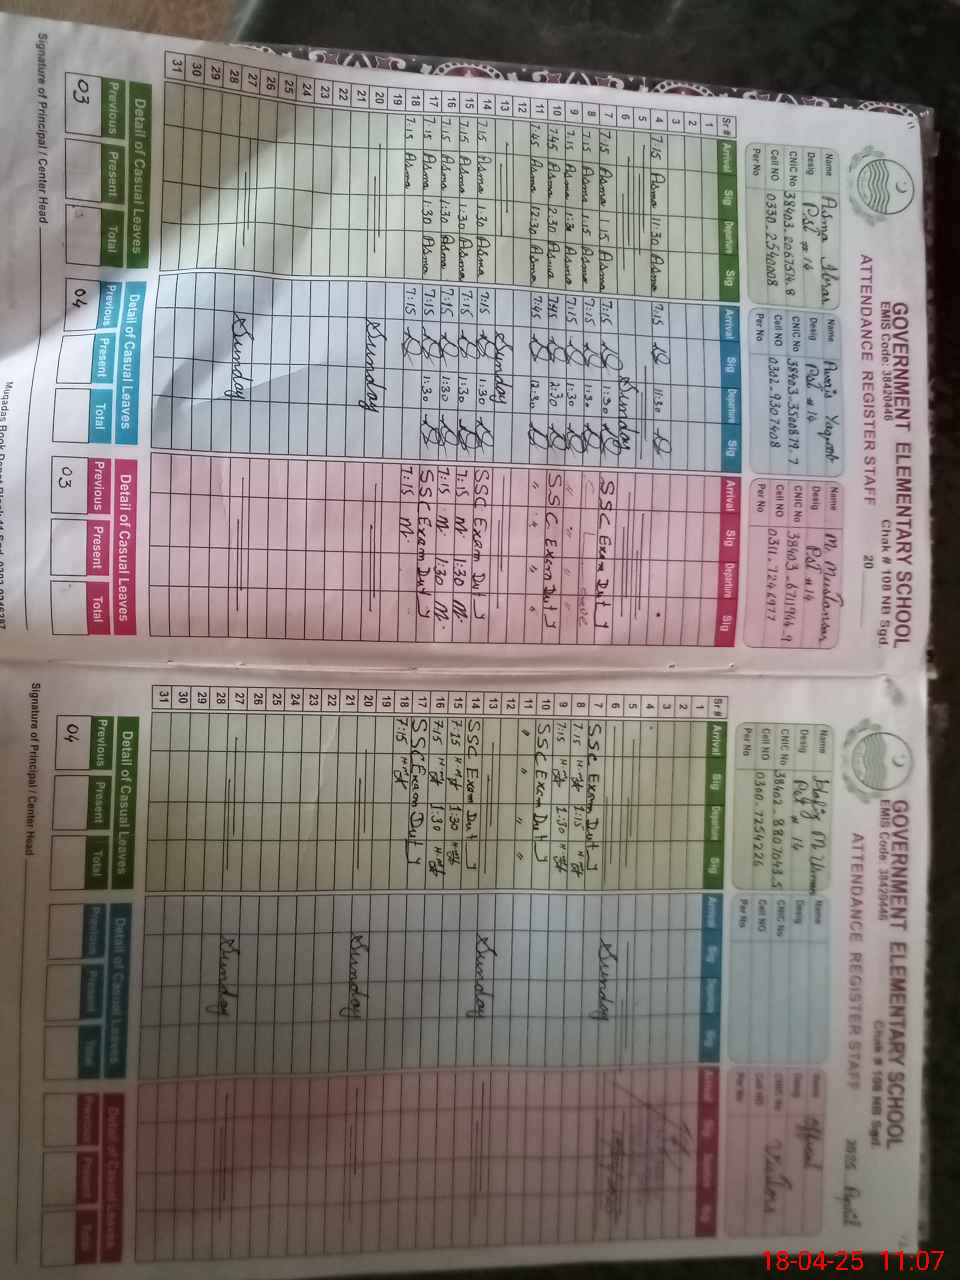 GOVERNMENT ELEMENTARY SCHOOL
EMIS Code: 38420446
Chak # 108 NB Sgd.
ATTENDANCE REGISTER STAFF
20
Name Asma
Desig Pst # 14
CNIC No 38403-2067574-8
Cell NO 0330-2540008
Per No
Name
Desig Pst # 14
CNIC No 38403-3500879-7
Cell NO 0302-9307408
Per No
Name M. Mustansar
Desig Pst # 14
CNIC No 38403-6711966-9
Cell NO 0311-7246977
Per No
Sr # Arrival Sig Departure Sig Arrival Sig Departure Sig Arrival Sig Departure Sig
1
2
3
4 7:15 Asma 11:30 Asma 7:15 11:30
5
6 Sunday
7 7:15 Asma 1:15 Asma 7:15 1:30 SSC Exam Duty
8 7:15 Asma 1:15 Asma 7:15 1:30
9 7:15 Asma 1:30 Asma 7:15 1:30
10 7:45 Asma 2:30 Asma 7:45 2:30 SSC Exam Duty
11 7:45 Asma 12:30 Asma 7:45 12:30 " " " "
12
13 Sunday
14 7:15 Asma 1:30 Asma 7:15 1:30 SSC Exam Duty
15 7:15 Asma 1:30 Asma 7:15 1:30 7:15 M. 1:30 M.
16 7:15 Asma 1:30 Asma 7:15 1:30 7:15 M. 1:30 M.
17 7:15 Asma 1:30 Asma 7:15 1:30 SSC Exam Duty
18 7:15 Asma 7:15 7:15 M.
19
20 Sunday
21
22
23
24
25
26
27 Sunday
28
29
30
31
Detail of Casual Leaves Detail of Casual Leaves Detail of Casual Leaves
Previous Present Total Previous Present Total Previous Present Total
03 04 03
Signature of Principal / Center Head
GOVERNMENT ELEMENTARY SCHOOL
EMIS Code: 38420446
Chak # 108 NB Sgd.
ATTENDANCE REGISTER STAFF
2025 April
Name Hafiz M
Desig Pst # 14
CNIC No 38402-8807043-5
Cell NO 0300-7254226
Per No
Name
Desig
CNIC No
Cell NO
Per No
Name
Desig
CNIC No Visitors
Cell NO
Per No
Sr # Arrival Sig Departure Sig Arrival Sig Departure Sig Arrival Sig Departure Sig
1
2
3
4
5
6 Sunday
7 SSC Exam Duty
8 7:15 1:15
9 7:15 1:30
10 SSC Exam Duty
11 " " "
12
13 Sunday
14 SSC Exam Duty
15 7:15 1:30
16 7:15 1:30
17 SSC Exam Duty
18 7:15
19
20 Sunday
21
22
23
24
25
26
27 Sunday
28
29
30
31
Detail of Casual Leaves Detail of Casual Leaves Detail of Casual Leaves
Previous Present Total Previous Present Total Previous Present Total
04
Signature of Principal / Center Head
18-04-25 11:07